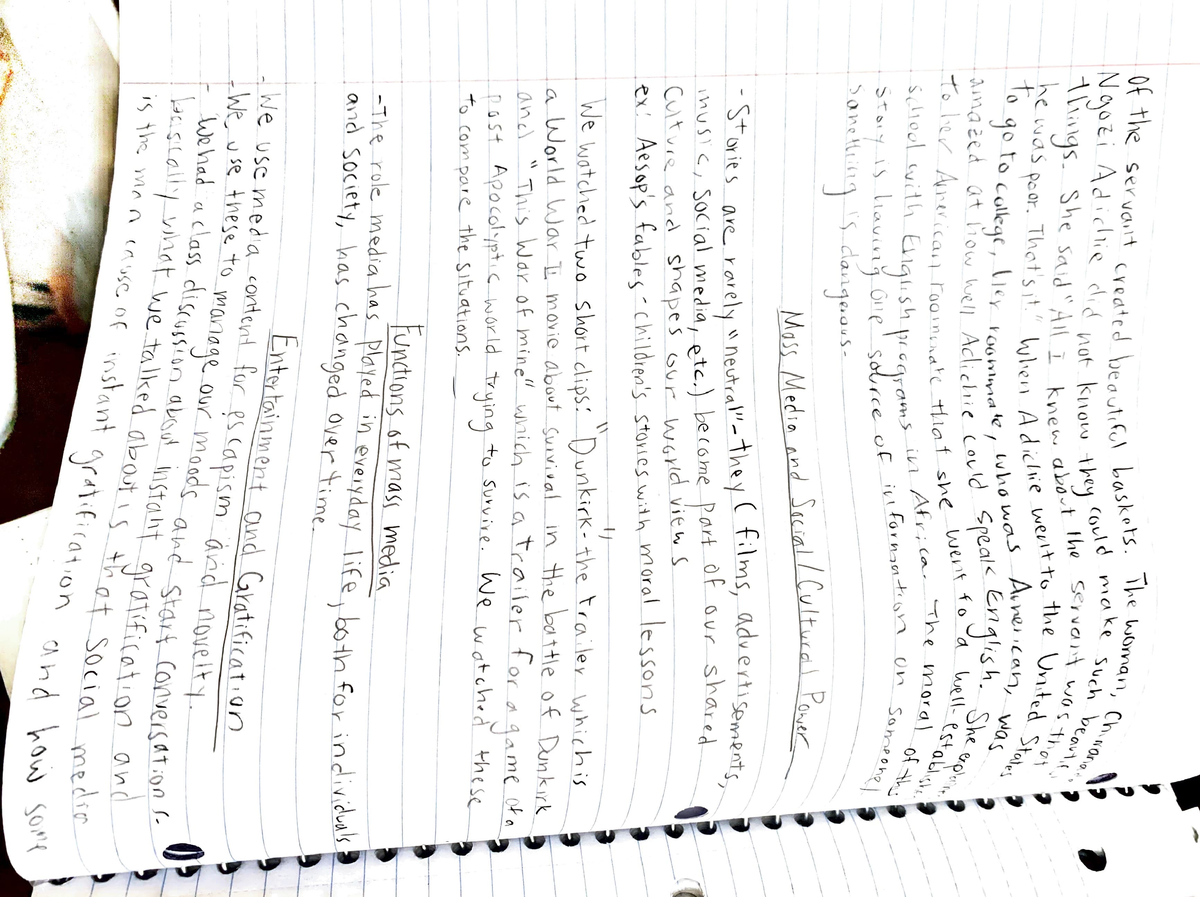 of the servant created beautiful baskets. The woman, Chimamanda
Ngozi Adichie did not know they could make such beautiful
things. She said "All I knew about the servant was that
he was poor. That's it." When Adichie went to the United States
to go to college, her roommate, who was American, was
amazed at how well Adichie could speak English. She explained
to her American roommate that she went to a well-established
school with English programs in Africa. The moral of the
story is having one source of information on someone/
something is dangerous.
Mass Media and Social/Cultural Power
- Stories are rarely "neutral" - they (films, advertisements,
music, social media, etc.) become part of our shared
culture and shapes our world views
ex: Aesop's fables - children's stories with moral lessons
We watched two short clips: "Dunkirk - the trailer" which is
a World War II movie about survival in the battle of Dunkirk
and "This War of mine" which is a trailer for a game of a
post Apocolyptic world trying to survive. We watched these
to compare the situations.
Functions of mass media
- The role media has played in everyday life, both for individuals
and society, has changed over time.
Entertainment and Gratification
- We use media content for escapism and novelty.
- We use these to manage our moods and start conversations.
- We had a class discussion about instant gratification and
basically what we talked about is that social media
is the main cause of instant gratification and how some